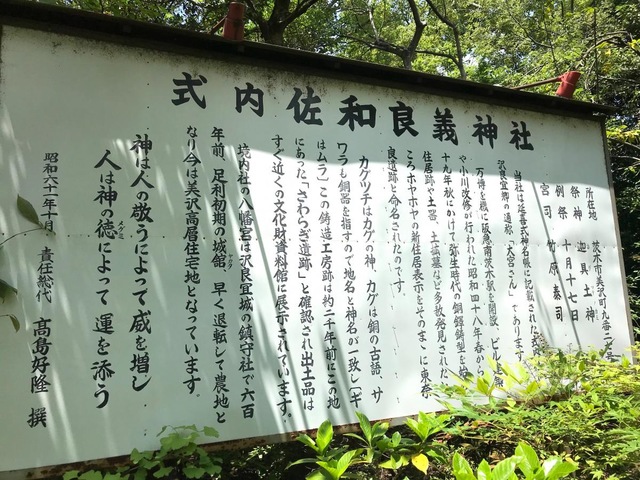 式内佐和良義神社
所在地　茨木市美沢町九番二
祭神　迦具土神
例祭　十月十七日
宮司　竹原泰司
当社は延喜式神名帳に記載された式
沢良宜郷の通称「大宮さん」であります
万博を機に阪急南茨木駅を開設、ビル建
や小川改修が行われた昭和四十八年春から
十九年秋にかけて弥生時代の銅鐸鋳型を
住居跡や土器、土壙墓など多数発見された
ころホヤホヤの新住居表示をそのまゝに東奈
良遺跡と命名されたのです。
カグツチはカグの神、カグは銅の古語、サ
ワラも銅器を指すので地名と神名が一致し(ギ
はムラ)この鋳造工房跡は約二千年前にこの地
にあった「さわらぎ遺跡」と確認され出土品は
すぐ近くの文化財資料館に展示されています。
境内社の八幡宮は沢良宜城の鎮守社で六百
年前、足利初期の城館、早く退転して農地と
なり今は美沢高層住宅地となっています。
神は人の敬うによって威を増し
人は神の徳によって運を添う
昭和六十一年十月　責任総代　髙島好隆　撰